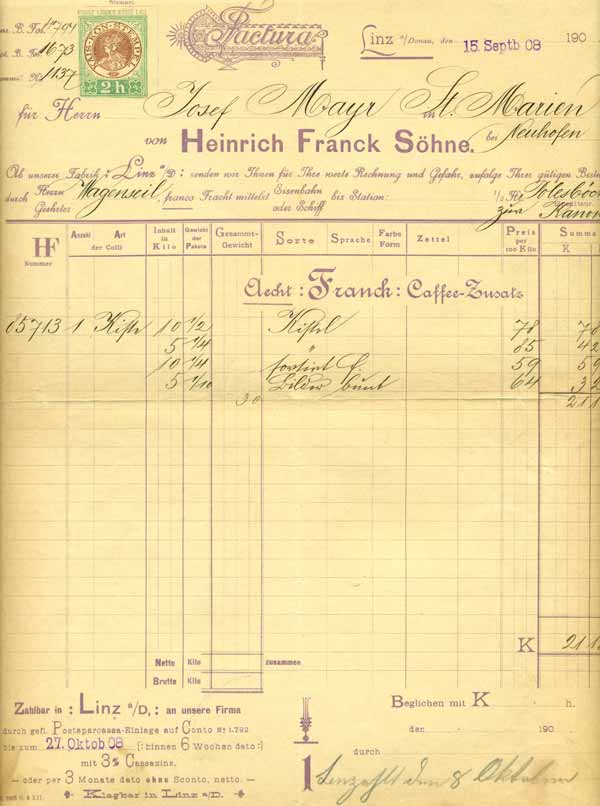 Stempel.
ns. B. Fol. 1794
st. B. Fol. 1673
omms. No 1137
2 h
Factura
Linz a/Donau, den 15. Septb 08 190
für Herrn Josef Mayr in St. Marien
von Heinrich Franck Söhne. bei Neuhofen
Ab unserer Fabrik z Linz a/D: senden wir Ihnen für Ihre werte Rechnung und Gefahr, zufolge Ihrer gütigen Best
durch Herrn Geehrtes Wagenseil, franco Fracht mittelst Eisenbahn oder Schiff bis Station:
zur
HF Nummer Anzahl Art der Colli Inhalt in Kilo Gewicht der Pakete Gesammt-Gewicht Sorte Sprache Farbe Form Zettel Preis per 100 Kilo Summa K
Aecht : Franck : Caffee-Zusatz
85713 1 Kiste 10 1/2 Kistel 78 78
5 1/4 " 85 42
10 1/4 sortirt f. 59 59
5 1/10 Bilder bunt 64 32
30 211
K 211
Netto Kilo zusammen
Brutto Kilo
Zahlbar in : Linz a/D, : an unsere Firma
durch gefl. Postsparcassa-Einlage auf Conto No 1.792
bis zum 27. Oktob 08 (: binnen 6 Wochen dato :)
mit 3% Cassazins,
— oder per 3 Monate dato ohne Sconto, netto. —
Klagbar in Linz a/D.
Beglichen mit K h.
den 190
durch
den 8 Oktober